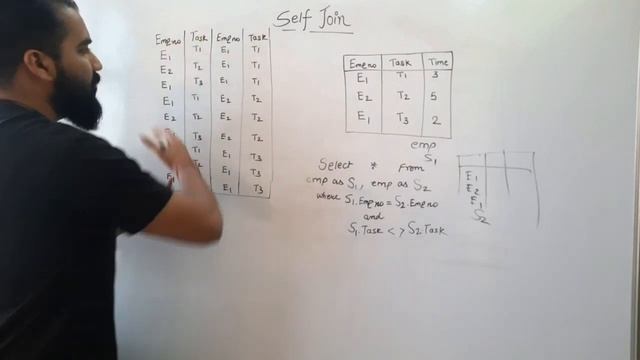 Self Join
Emp no Task Emp no Task
E1 T1 E1 T1
E2 T2 E1 T1
E1 T3 E1 T1
E1 T1 E2 T2
E2 T2 E2 T2
T3 E2 T2
T1 E1 T3
T2 E1 T3
E1 T3
Emp no Task Time
E1 T1 3
E2 T2 5
E1 T3 2
emp
S1
Select * from
emp as S1, emp as S2
where S1.Emp no = S2.Emp no
and
S1.Task < > S2.Task
E1
E2
E1
S2